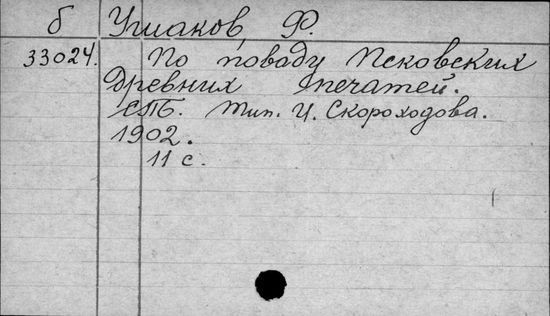 б Ушаков, Ф.
33024. По поваду Псковских
древних печатей.
СПБ. Тип. И. Скороходова.
1902.
11 с.